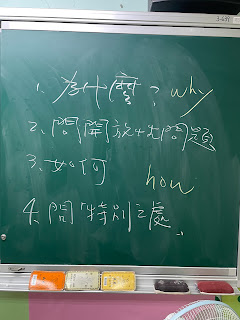 1. 為什麼? why
2. 問開放性問題
3. 如何 how
4. 問「特別之處」